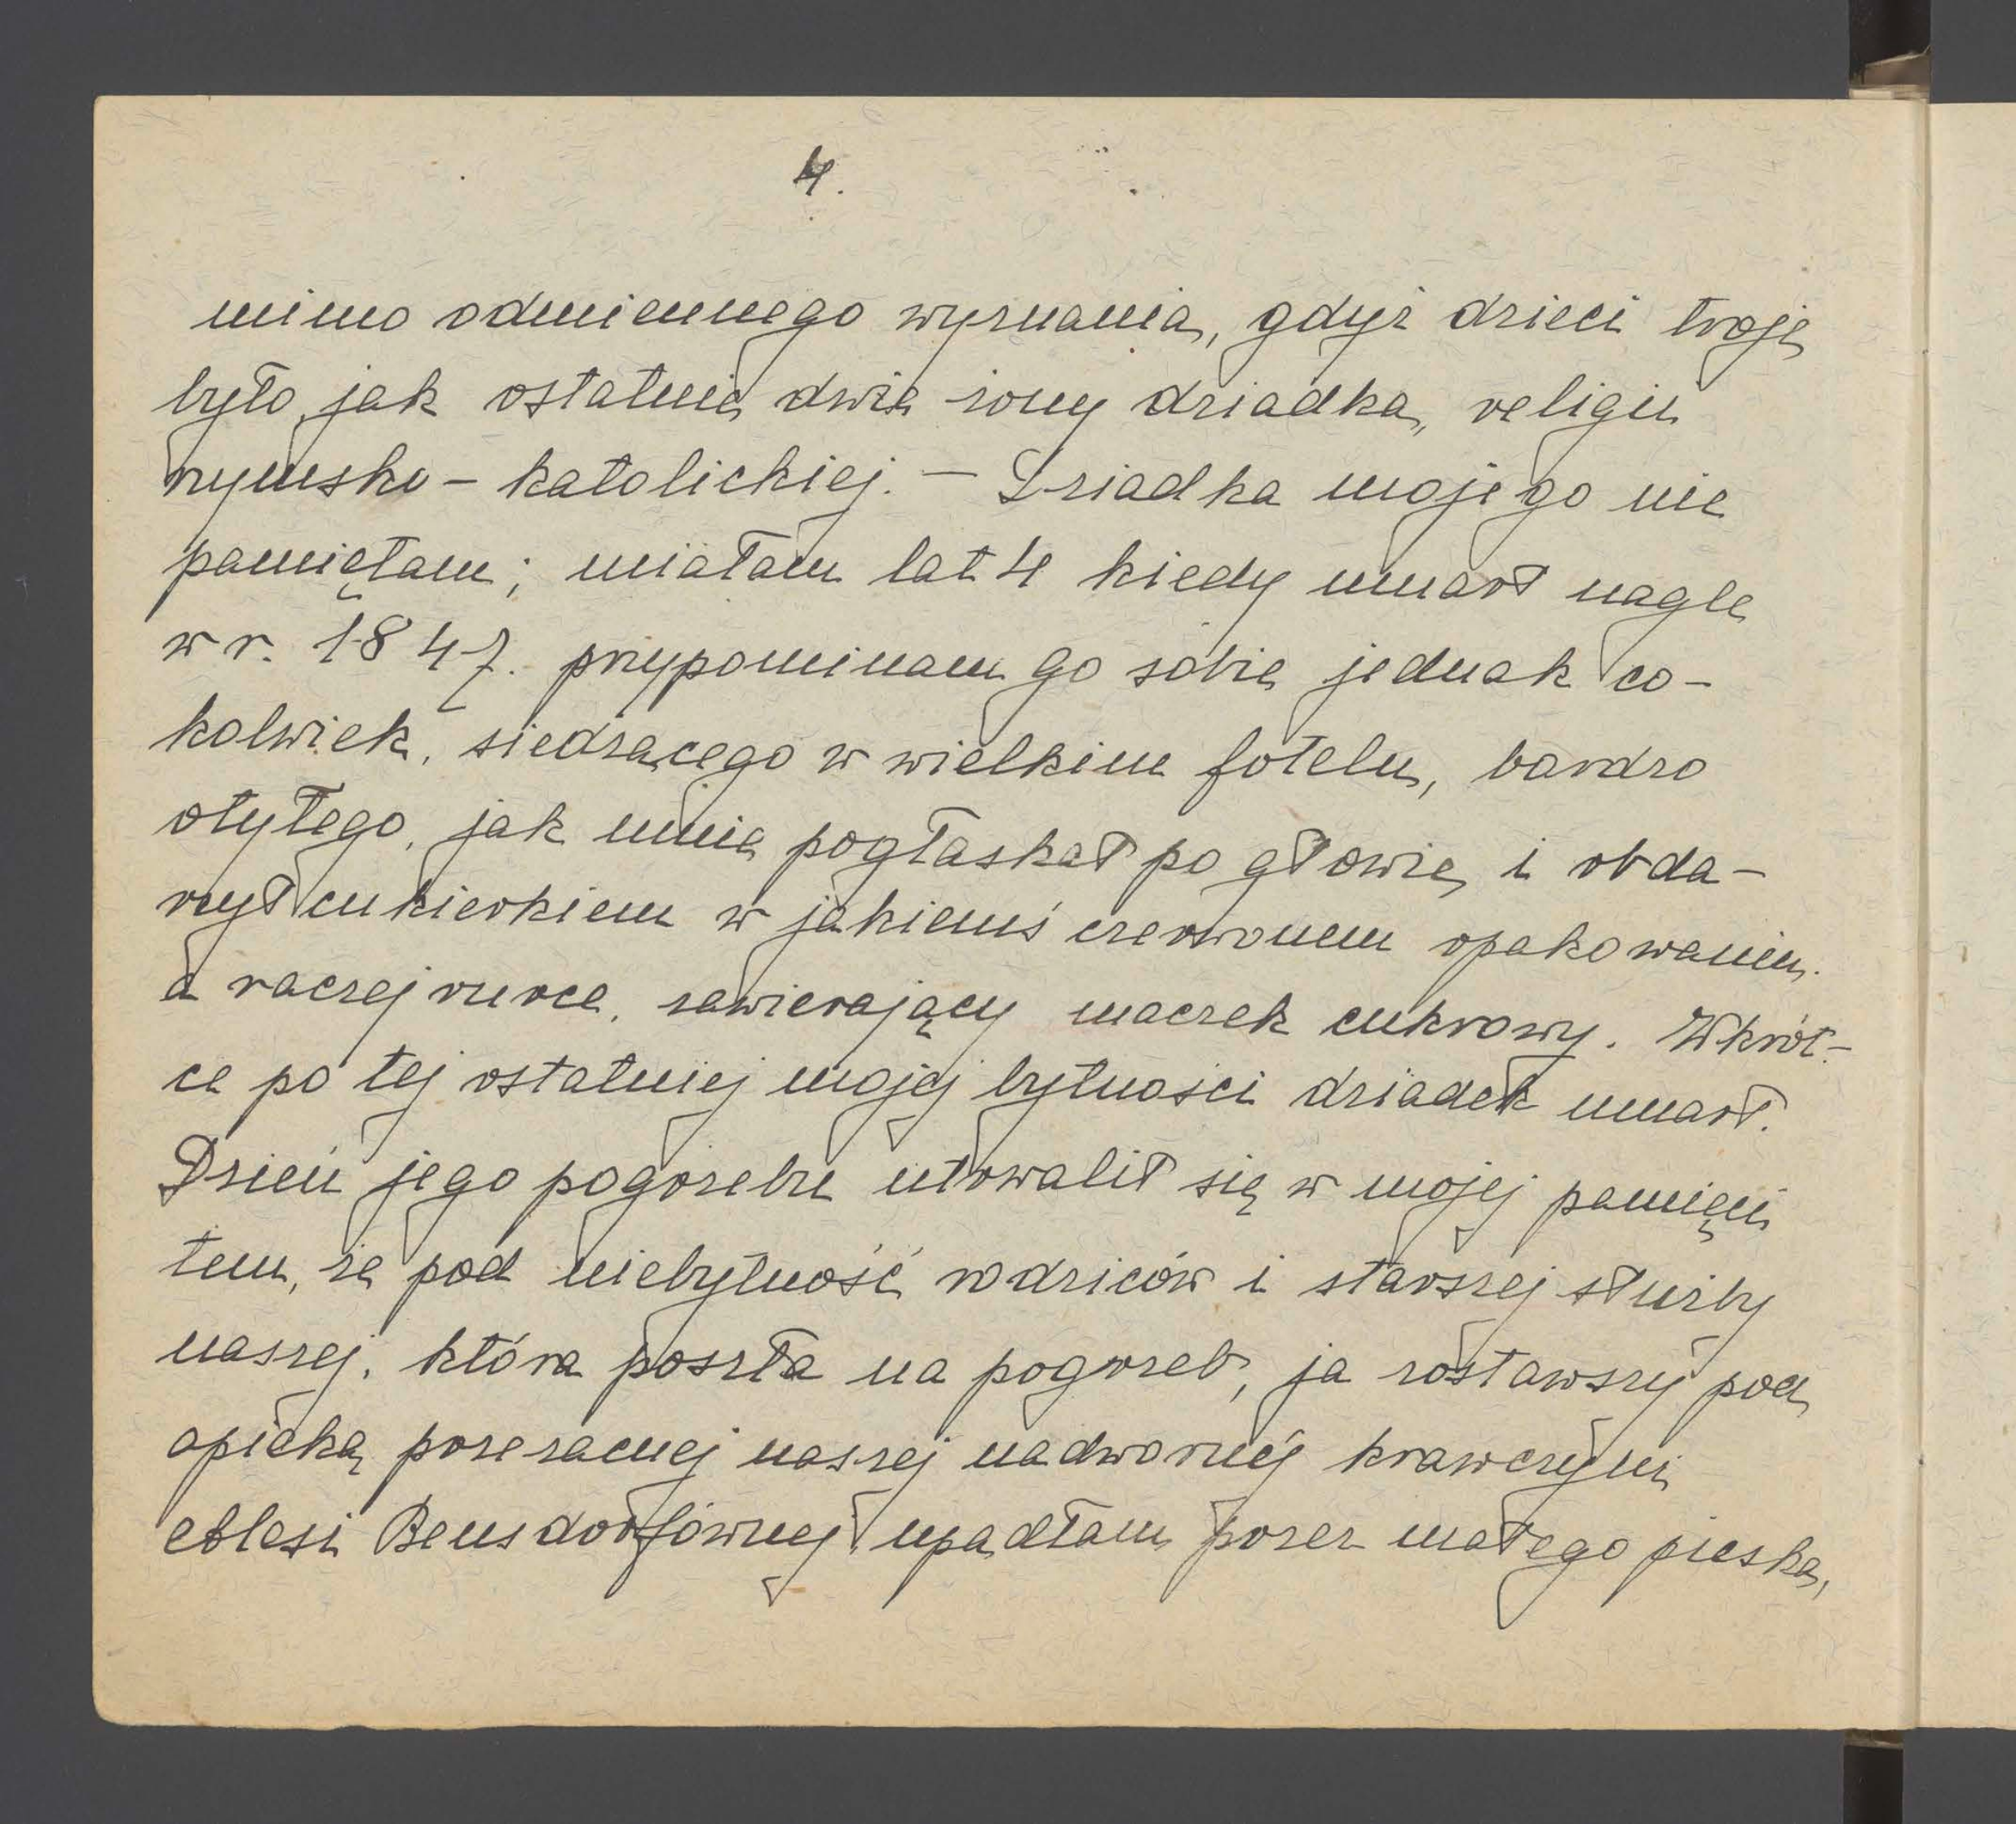 4.
mimo odmiennego wyznania, gdyż dzieci troje
było, jak ostatnie dwie żony dziadka, religii
rzymsko-katolickiej. — Dziadka mojego nie
pamiętam; miałam lat 4 kiedy umarł nagle
w r. 1847. przypominam go sobie jednak co-
kolwiek, siedzącego w wielkim fotelu, bardzo
otyłego, jak mnie pogłaskał po głowie i obda-
rzył cukierkiem w jakiemś czerwonem opakowaniu.
a raczej rurce, zawierający maczek cukrowy. Wkrót-
ce po tej ostatniej mojej bytności dziadek umarł.
Dzień jego pogrzebu utrwalił się w mojej pamięci
tem, że pod niebytność rodziców i starszej służby
naszej, która poszła na pogrzeb, ja zostawszy pod
opieką poczciwej naszej nadwornej krawczyni
Bensdorfównej upadłam przez małego pieska,